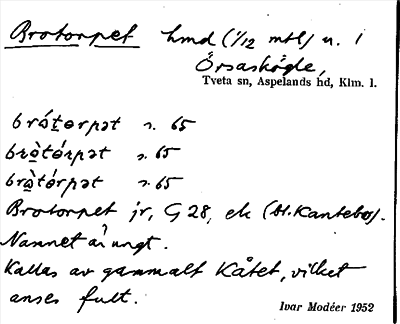 Brotorpet hmd (1/12 mtl) u. 1
Örsaskögle,
Tveta sn, Aspelands hd, Klm. l.
brótorpət s. 65
brò̱tórpət s. 65
brò̱tórpət s. 65
Brotorpet jr, G 28, ek (bl. Kantebo).
Namnet är ungt.
Kallas av gammalt Kåtet, vilket
anses fult.
Ivar Modéer 1952